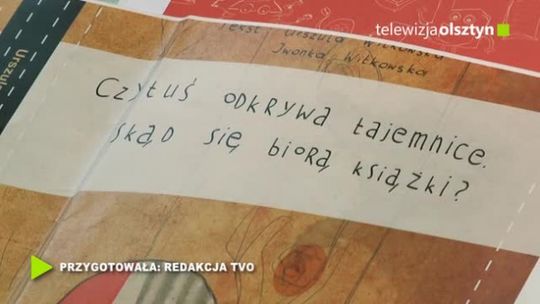 telewizjaolsztyn
Tekst Urszula Witkowska
Iwonka Witkowska
Urszula
Czytuś odkrywa tajemnice.
skąd się biorą książki?
PRZYGOTOWAŁA: REDAKCJA TVO